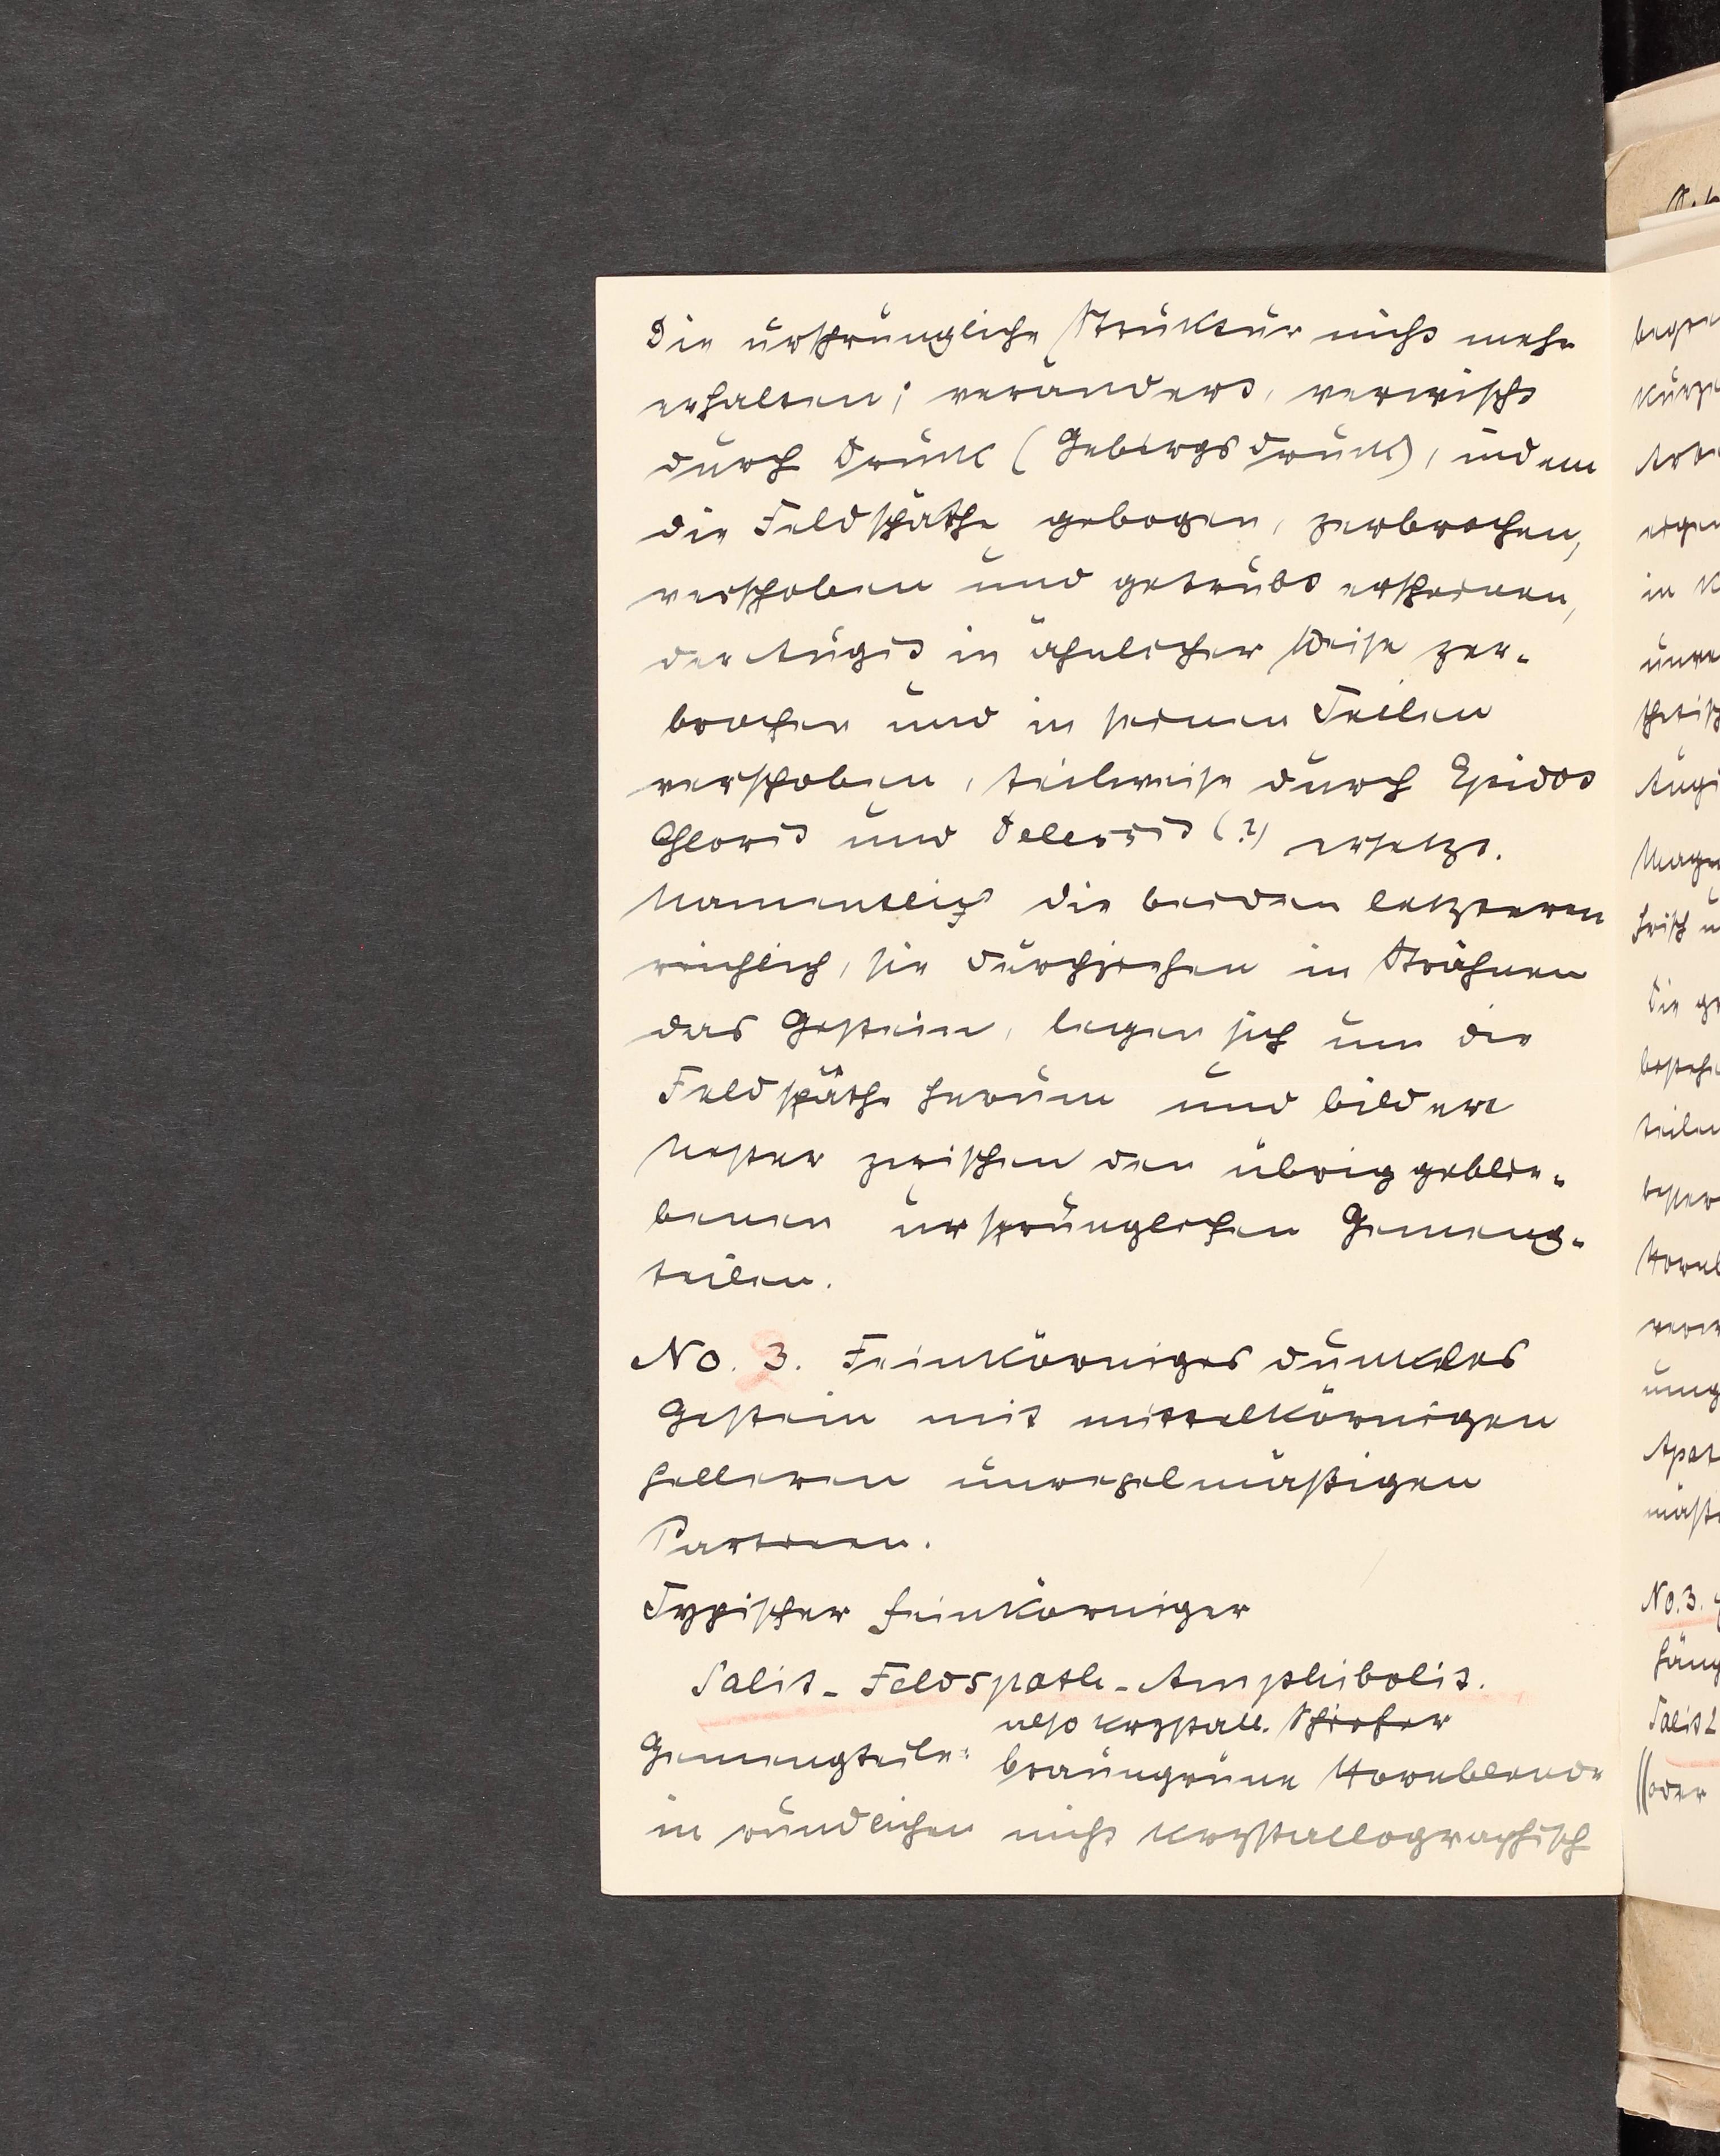 Die ursprüngliche Struktur nicht mehr
erhalten; verändert, verwischt
durch Druck (Gebirgsdruck), indem
die Feldspäthe gebogen, zerbrochen,
verschoben und getrübt erscheinen,
der Augit in ähnlicher Weise zer-
brochen und in seinen Teilen
verschoben, teilweise durch Epidot
Chlorit und Delessit (?) ersetzt.
Namentlich die beiden letzteren
reichlich, sie durchziehen in Strähnen
das Gestein, legen sich um die
Feldspäthe herum und bilden
Nester zwischen den übrig geblie-
benen ursprünglichen Gemeng-
teilen.
No. 3. Feinkörniges dunkles
Gestein mit mittelkörnigen
helleren unregelmäßigen
Partieen.
Typischer feinkörniger
Salit-Feldspath-Amphibolit.
also krystall. Schiefer
Gemengteile: braungrüne Hornblende
in rundlichen nicht krystallographisch